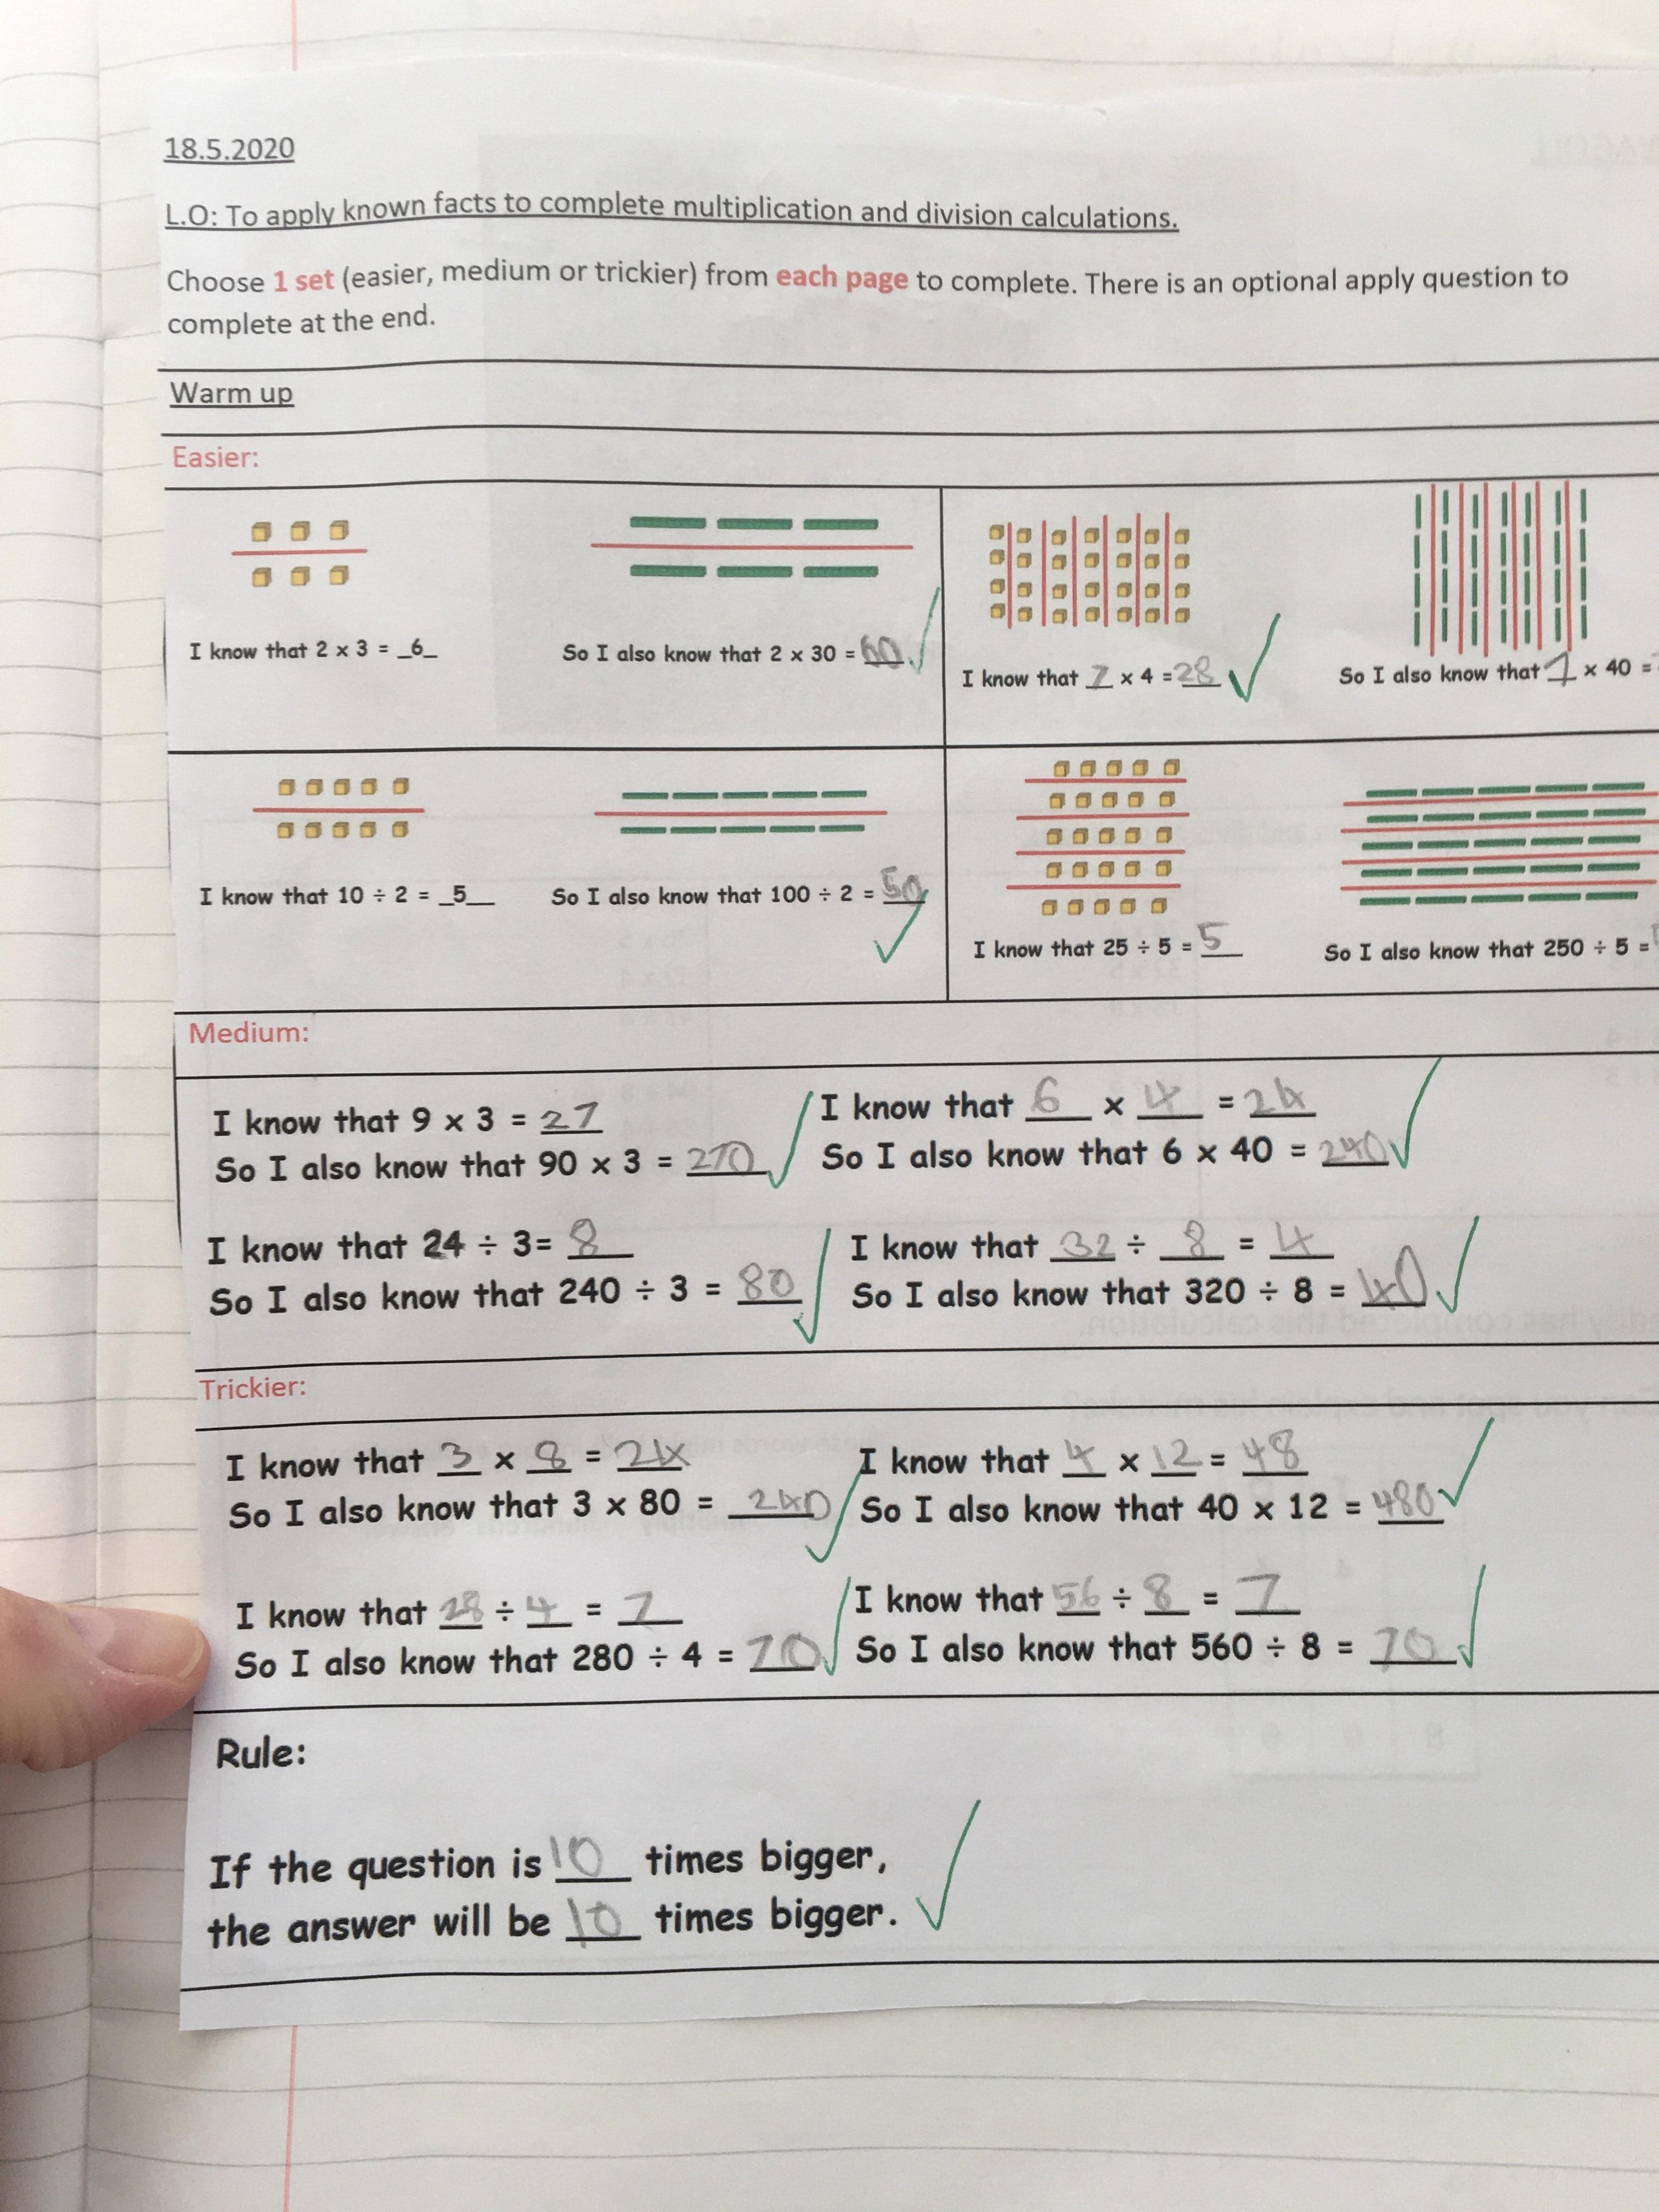 18.5.2020
L.O: To apply known facts to complete multiplication and division calculations.
Choose 1 set (easier, medium or trickier) from each page to complete. There is an optional apply question to
complete at the end.
Warm up
Easier:
I know that 2 x 3 = _6_
So I also know that 2 x 30 = 60
I know that 7 x 4 = 28
So I also know that 7 x 40 =
I know that 10 ÷ 2 = _5__
So I also know that 100 ÷ 2 = 50
I know that 25 ÷ 5 = 5
So I also know that 250 ÷ 5 =
Medium:
I know that 9 x 3 = 27
So I also know that 90 x 3 = 270
I know that 6 x 4 = 24
So I also know that 6 x 40 = 240
I know that 24 ÷ 3= 8
So I also know that 240 ÷ 3 = 80
I know that 32 ÷ 8 = 4
So I also know that 320 ÷ 8 = 40
Trickier:
I know that 3 x 8 = 24
So I also know that 3 x 80 = 240
I know that 4 x 12 = 48
So I also know that 40 x 12 = 480
I know that 28 ÷ 4 = 7
So I also know that 280 ÷ 4 = 70
I know that 56 ÷ 8 = 7
So I also know that 560 ÷ 8 = 70
Rule:
If the question is 10 times bigger,
the answer will be 10 times bigger.